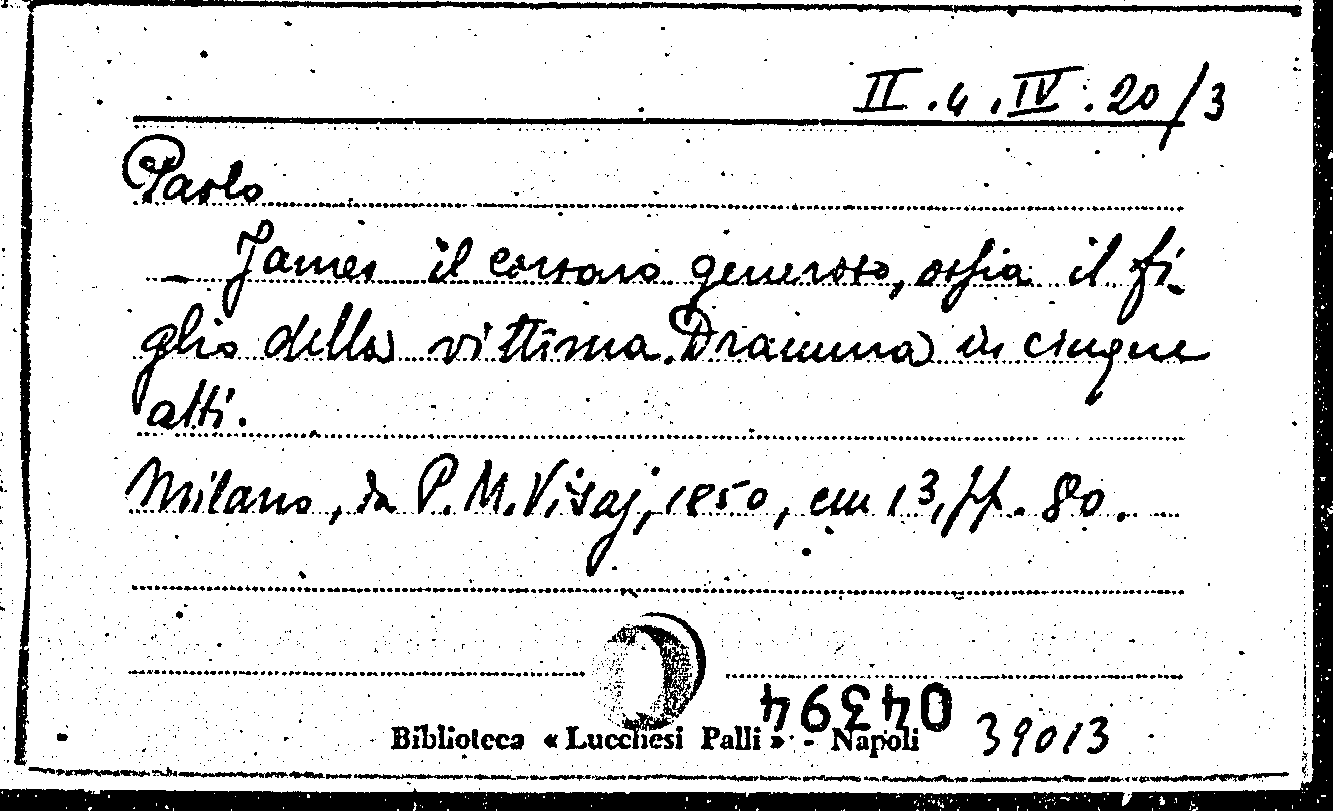 II.4.IV.20/3
Paolo
- James il corsaro generoso, ossia il fi-
glio della vittima. Dramma in cinque
atti.
Milano, da P. M. Visaj, 1850, cm 13, pp. 80.
04394
Biblioteca « Lucchesi Palli » - Napoli 39013